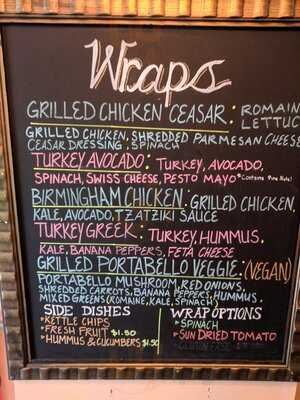 Wraps
GRILLED CHICKEN CEASAR: ROMAIN
LETTUC
GRILLED CHICKEN, SHREDDED PARMESAN CHEESE
CEASAR DRESSING, SPINACH
TURKEY AVOCADO: TURKEY, AVOCADO,
SPINACH, SWISS CHEESE, PESTO MAYO *Contains Pine Nuts!
BIRMINGHAM CHICKEN: GRILLED CHICKEN,
KALE, AVOCADO, TZATZIKI SAUCE
TURKEY GREEK: TURKEY, HUMMUS,
KALE, BANANA PEPPERS, FETA CHEESE
GRILLED PORTABELLO VEGGIE: (VEGAN)
PORTABELLO MUSHROOM, RED ONIONS,
SHREDDED CARROTS, BANANA PEPPERS, HUMMUS,
MIXED GREENS (ROMAINE, KALE, SPINACH)
SIDE DISHES
*KETTLE CHIPS
*FRESH FRUIT $1.50
*HUMMUS & CUCUMBERS $1.50
WRAP OPTIONS
*SPINACH
*SUN DRIED TOMATO